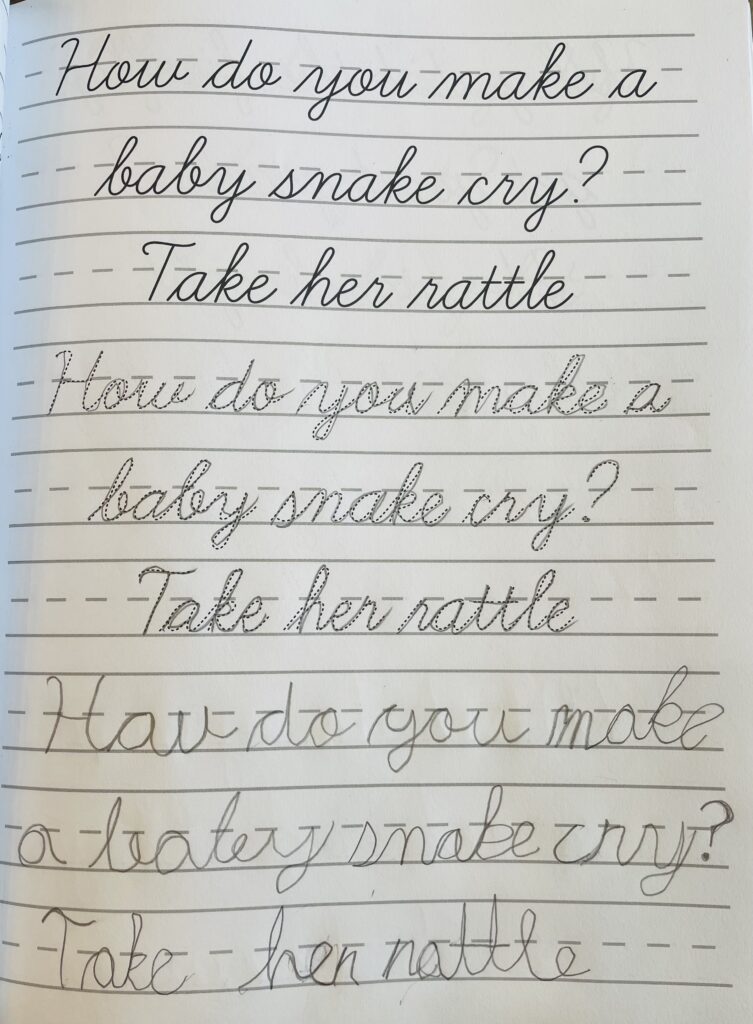 How do you make a
baby snake cry?
Take her rattle
How do you make a
baby snake cry?
Take her rattle
How do you make
a baby snake cry?
Take her rattle